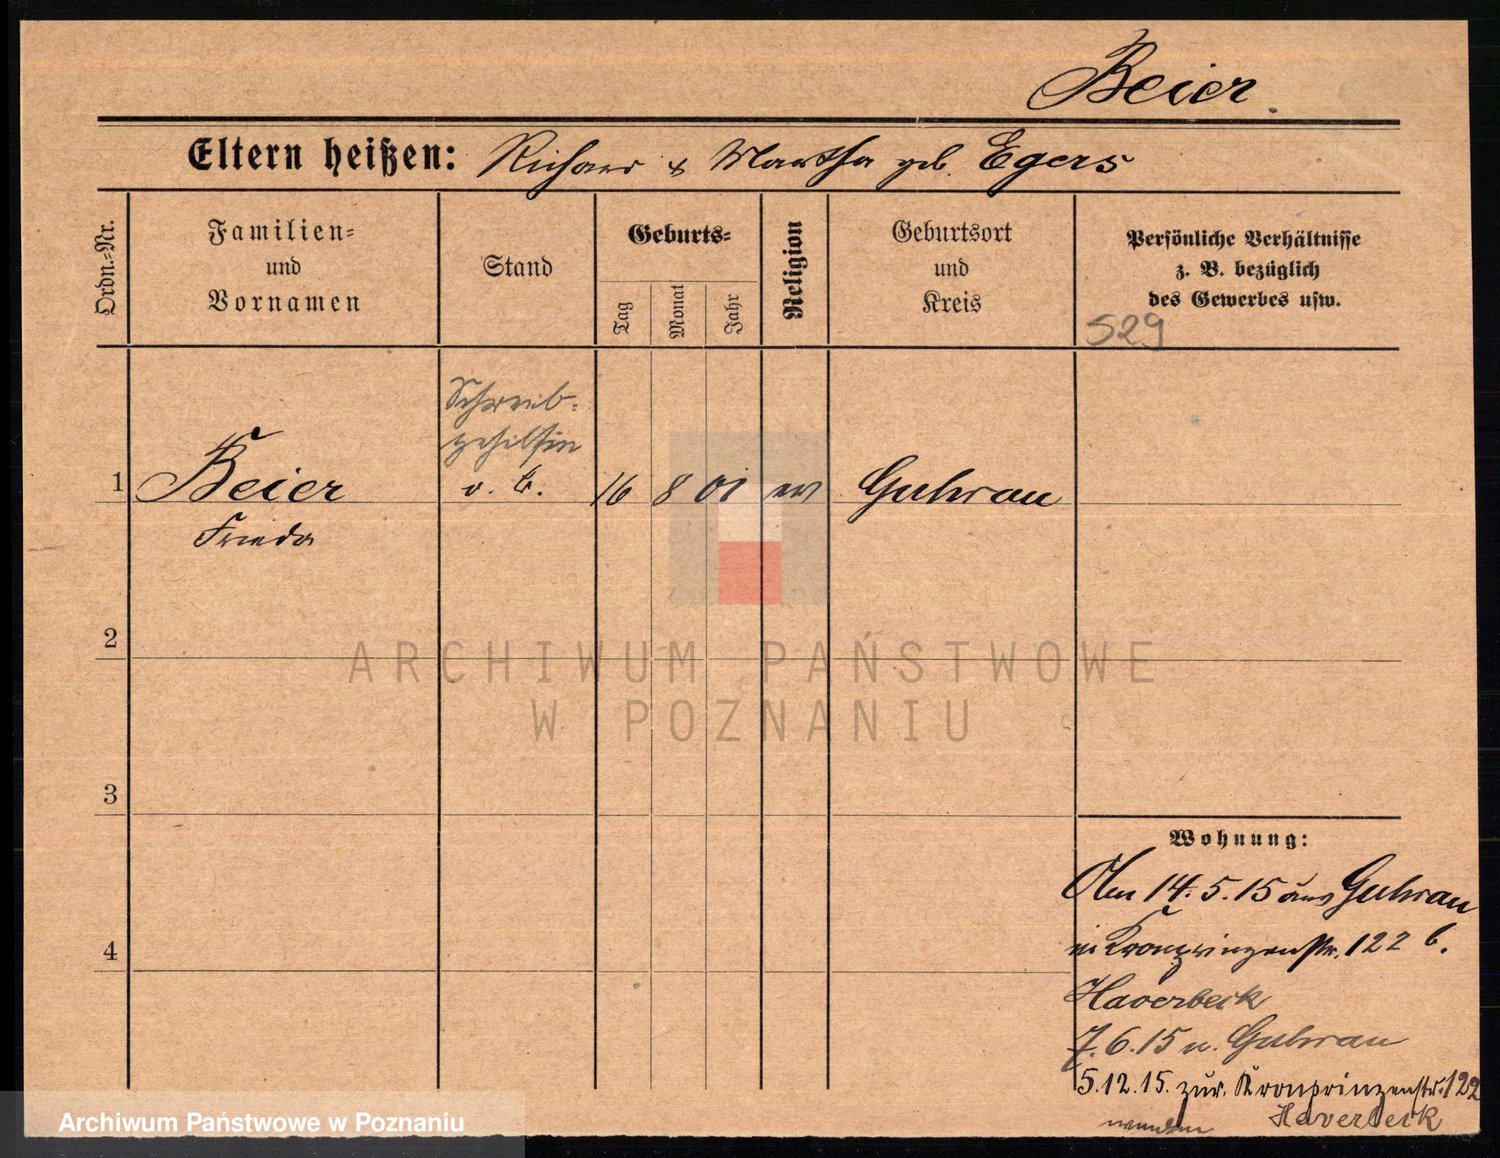 Beier.
Eltern heißen: Richard & Martha geb. Egers
Ordn.-Nr.
Familien- und Vornamen
Stand
Geburts-
Tag
Monat
Jahr
Religion
Geburtsort und Kreis
Persönliche Verhältnisse
z. B. bezüglich
des Gewerbes usw.
529
Schreib-
gehilfin
1 Beier v. B. 16 8 01 ev Guhrau
Frieda
2
3
4
Wohnung:
14.5.15 aus Guhrau
Kronprinzenstr. 122 b.
Haverbeck
7.6.15 n. Guhrau
5.12.15. zur. Kronprinzenstr. 122
Haverbeck
ARCHIWUM PAŃSTWOWE
W POZNANIU
Archiwum Państwowe w Poznaniu